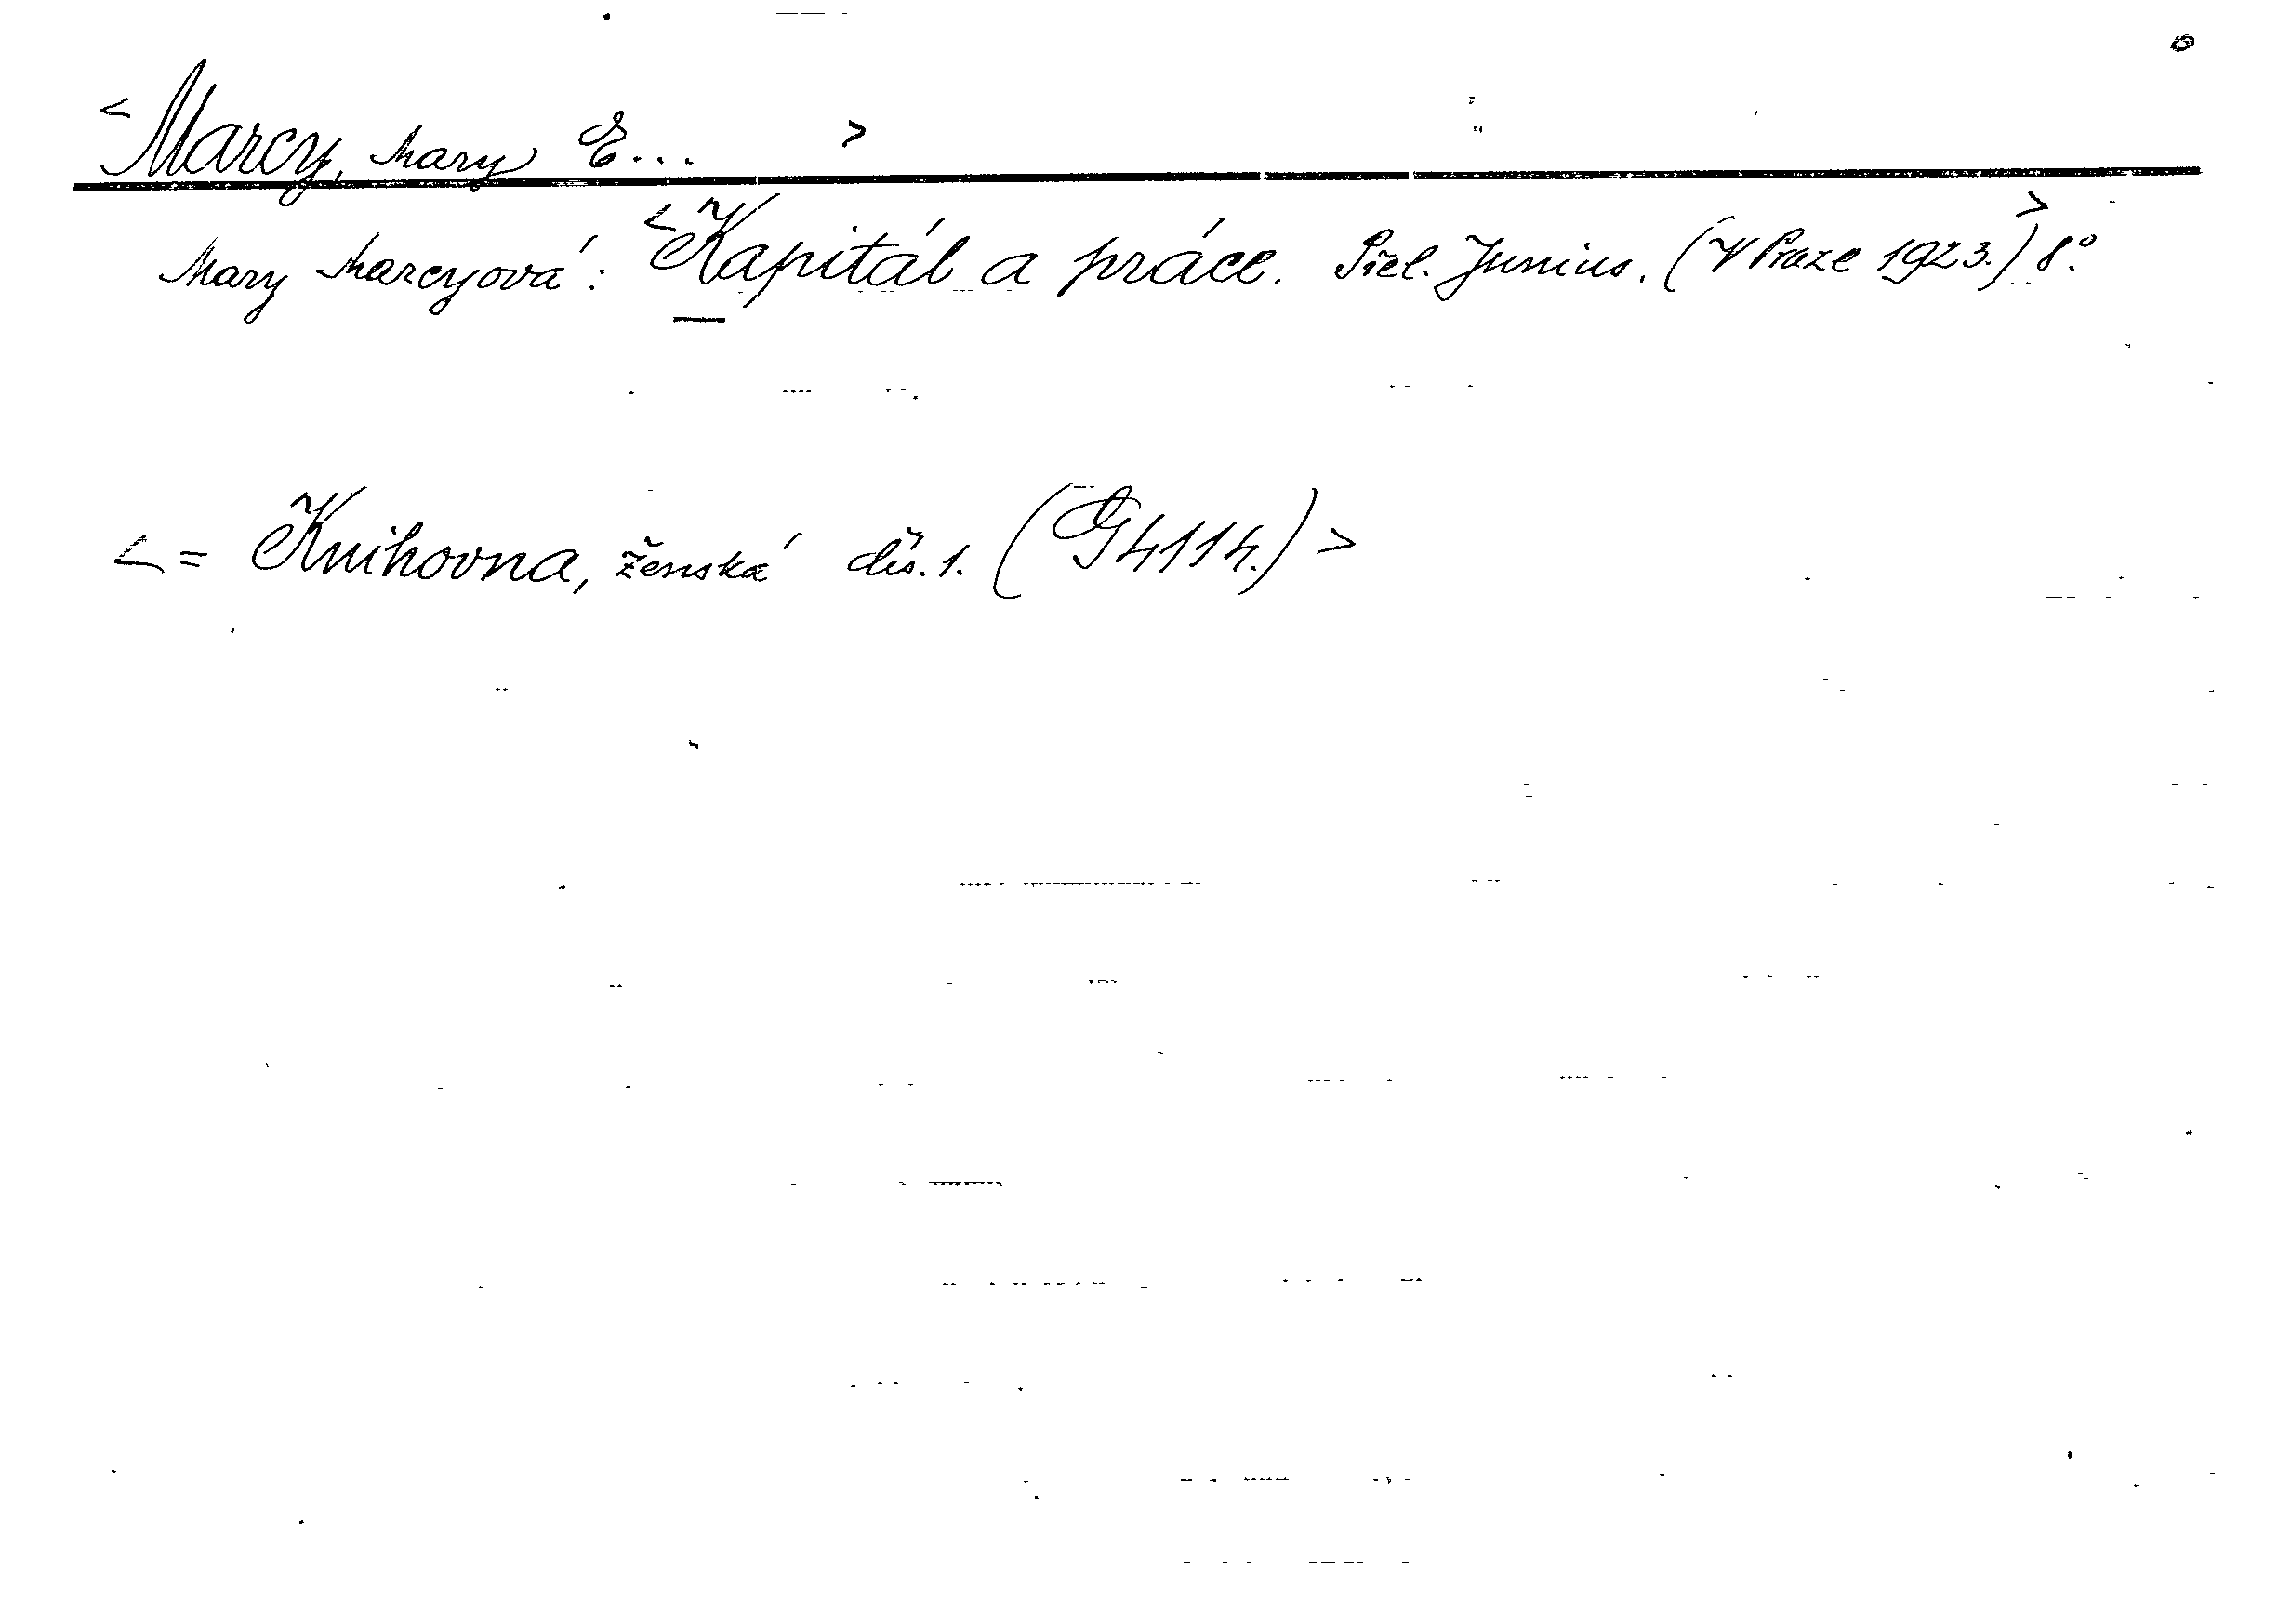 <Marcy, Mary E... >
Mary Marcyová: <Kapitál a práce. Přel. Junius. (V Praze 1923.)> 8º.
<= Knihovna, ženská čís. 1. (G 4114.)>